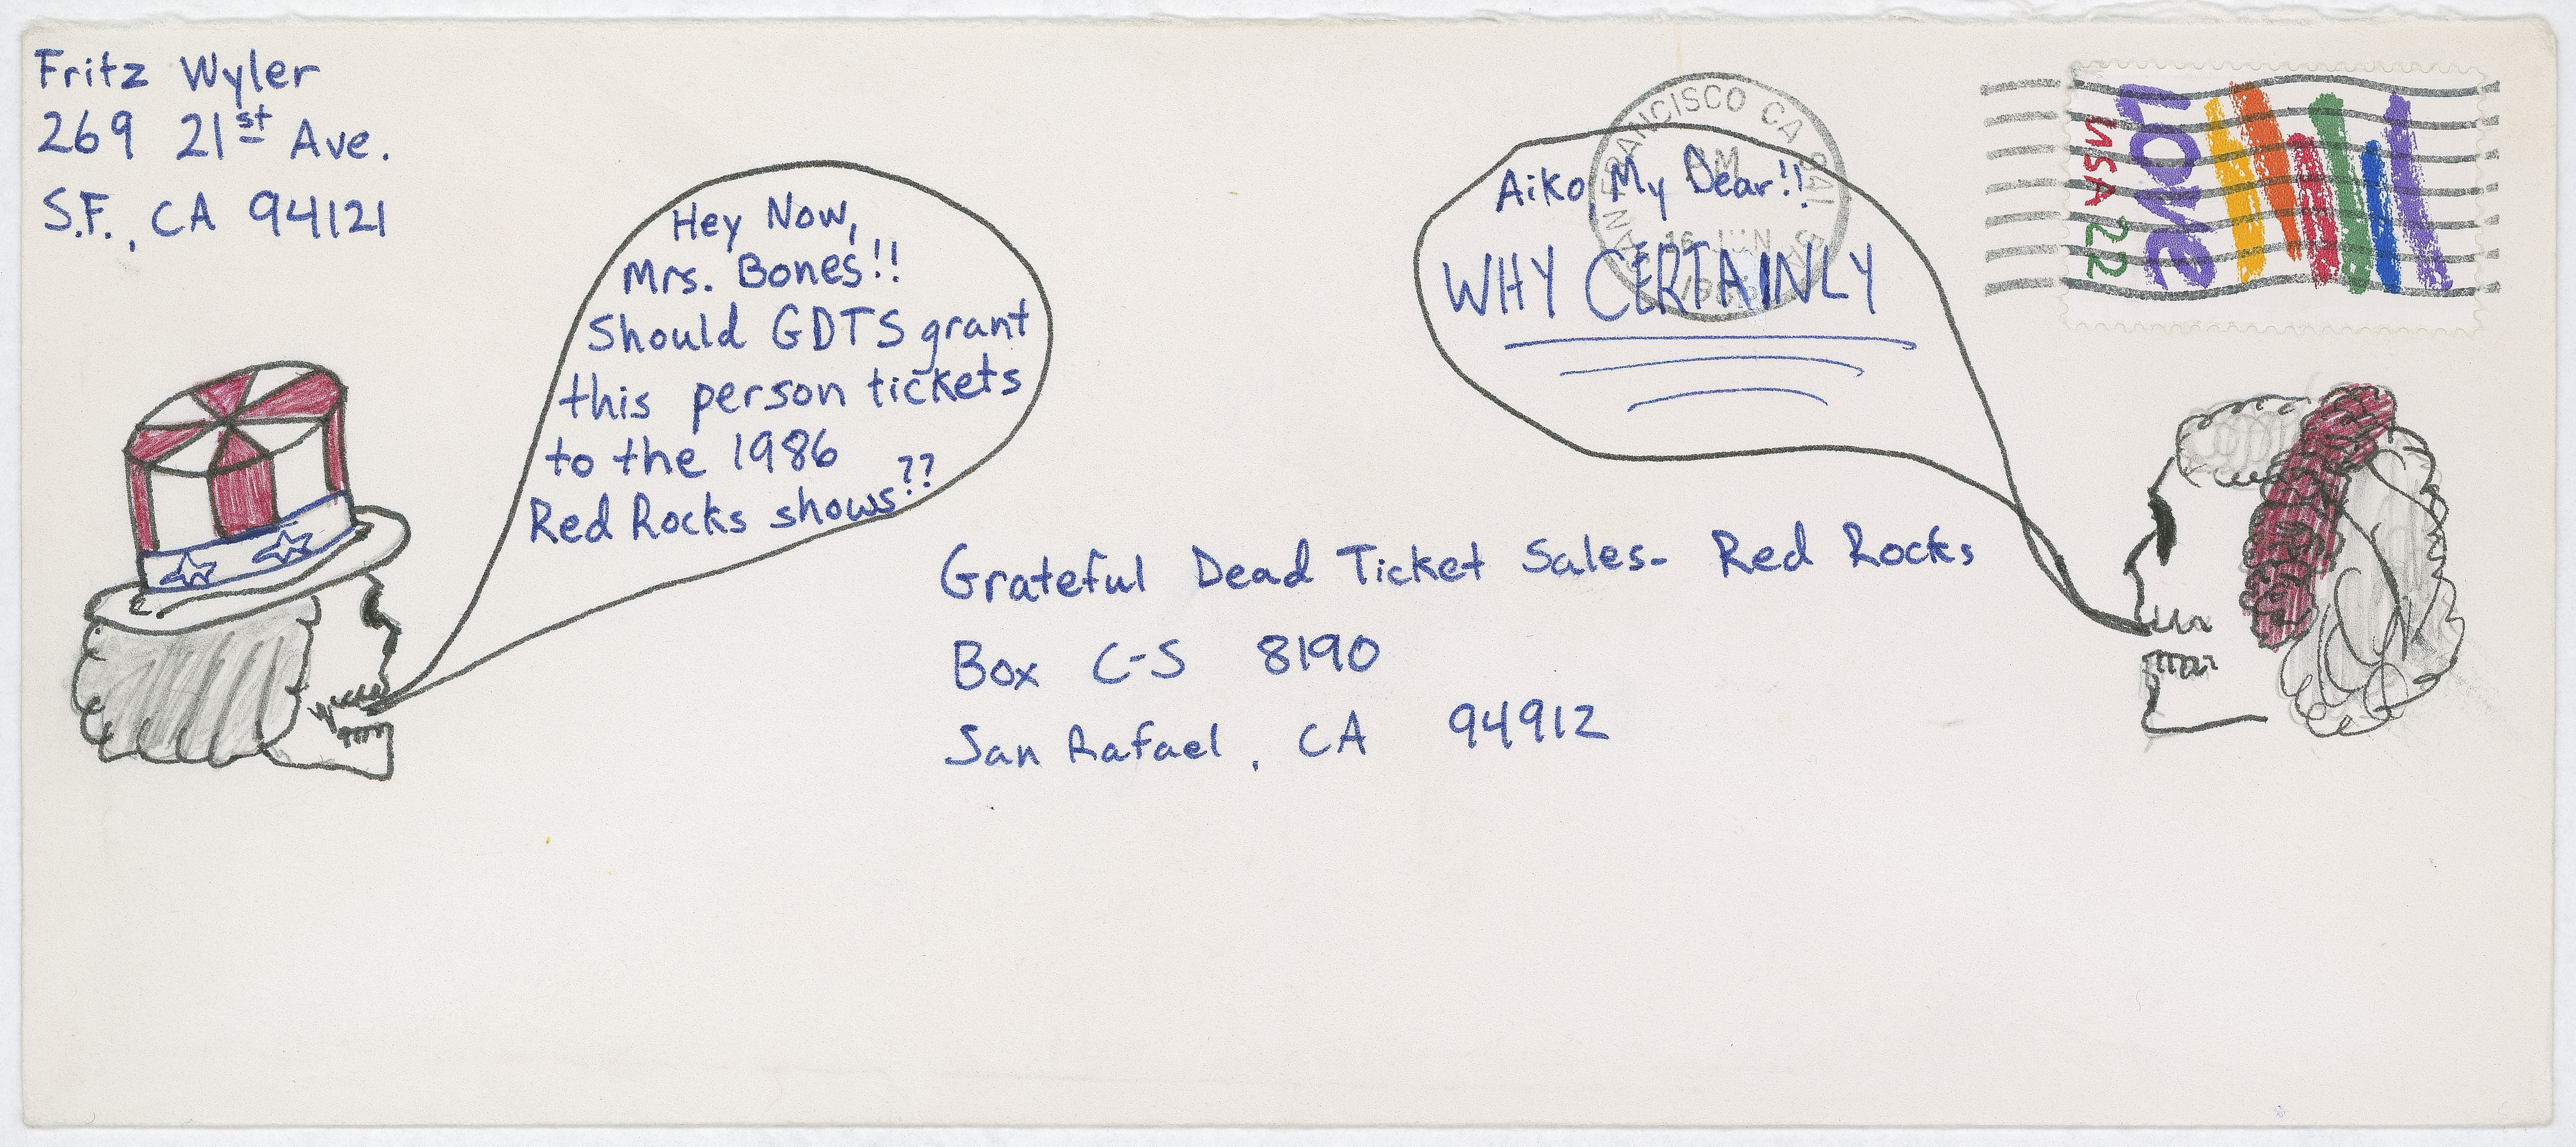 Fritz Wyler
269 21st Ave.
S.F., CA 94121
Hey Now,
Mrs. Bones!!
Should GDTS grant
this person tickets
to the 1986
Red Rocks shows??
Aiko, My Dear!!
WHY CERTAINLY
FRANCISCO CA 941
LOVE
USA 22
Grateful Dead Ticket Sales- Red Rocks
Box C-S 8190
San Rafael, CA 94912